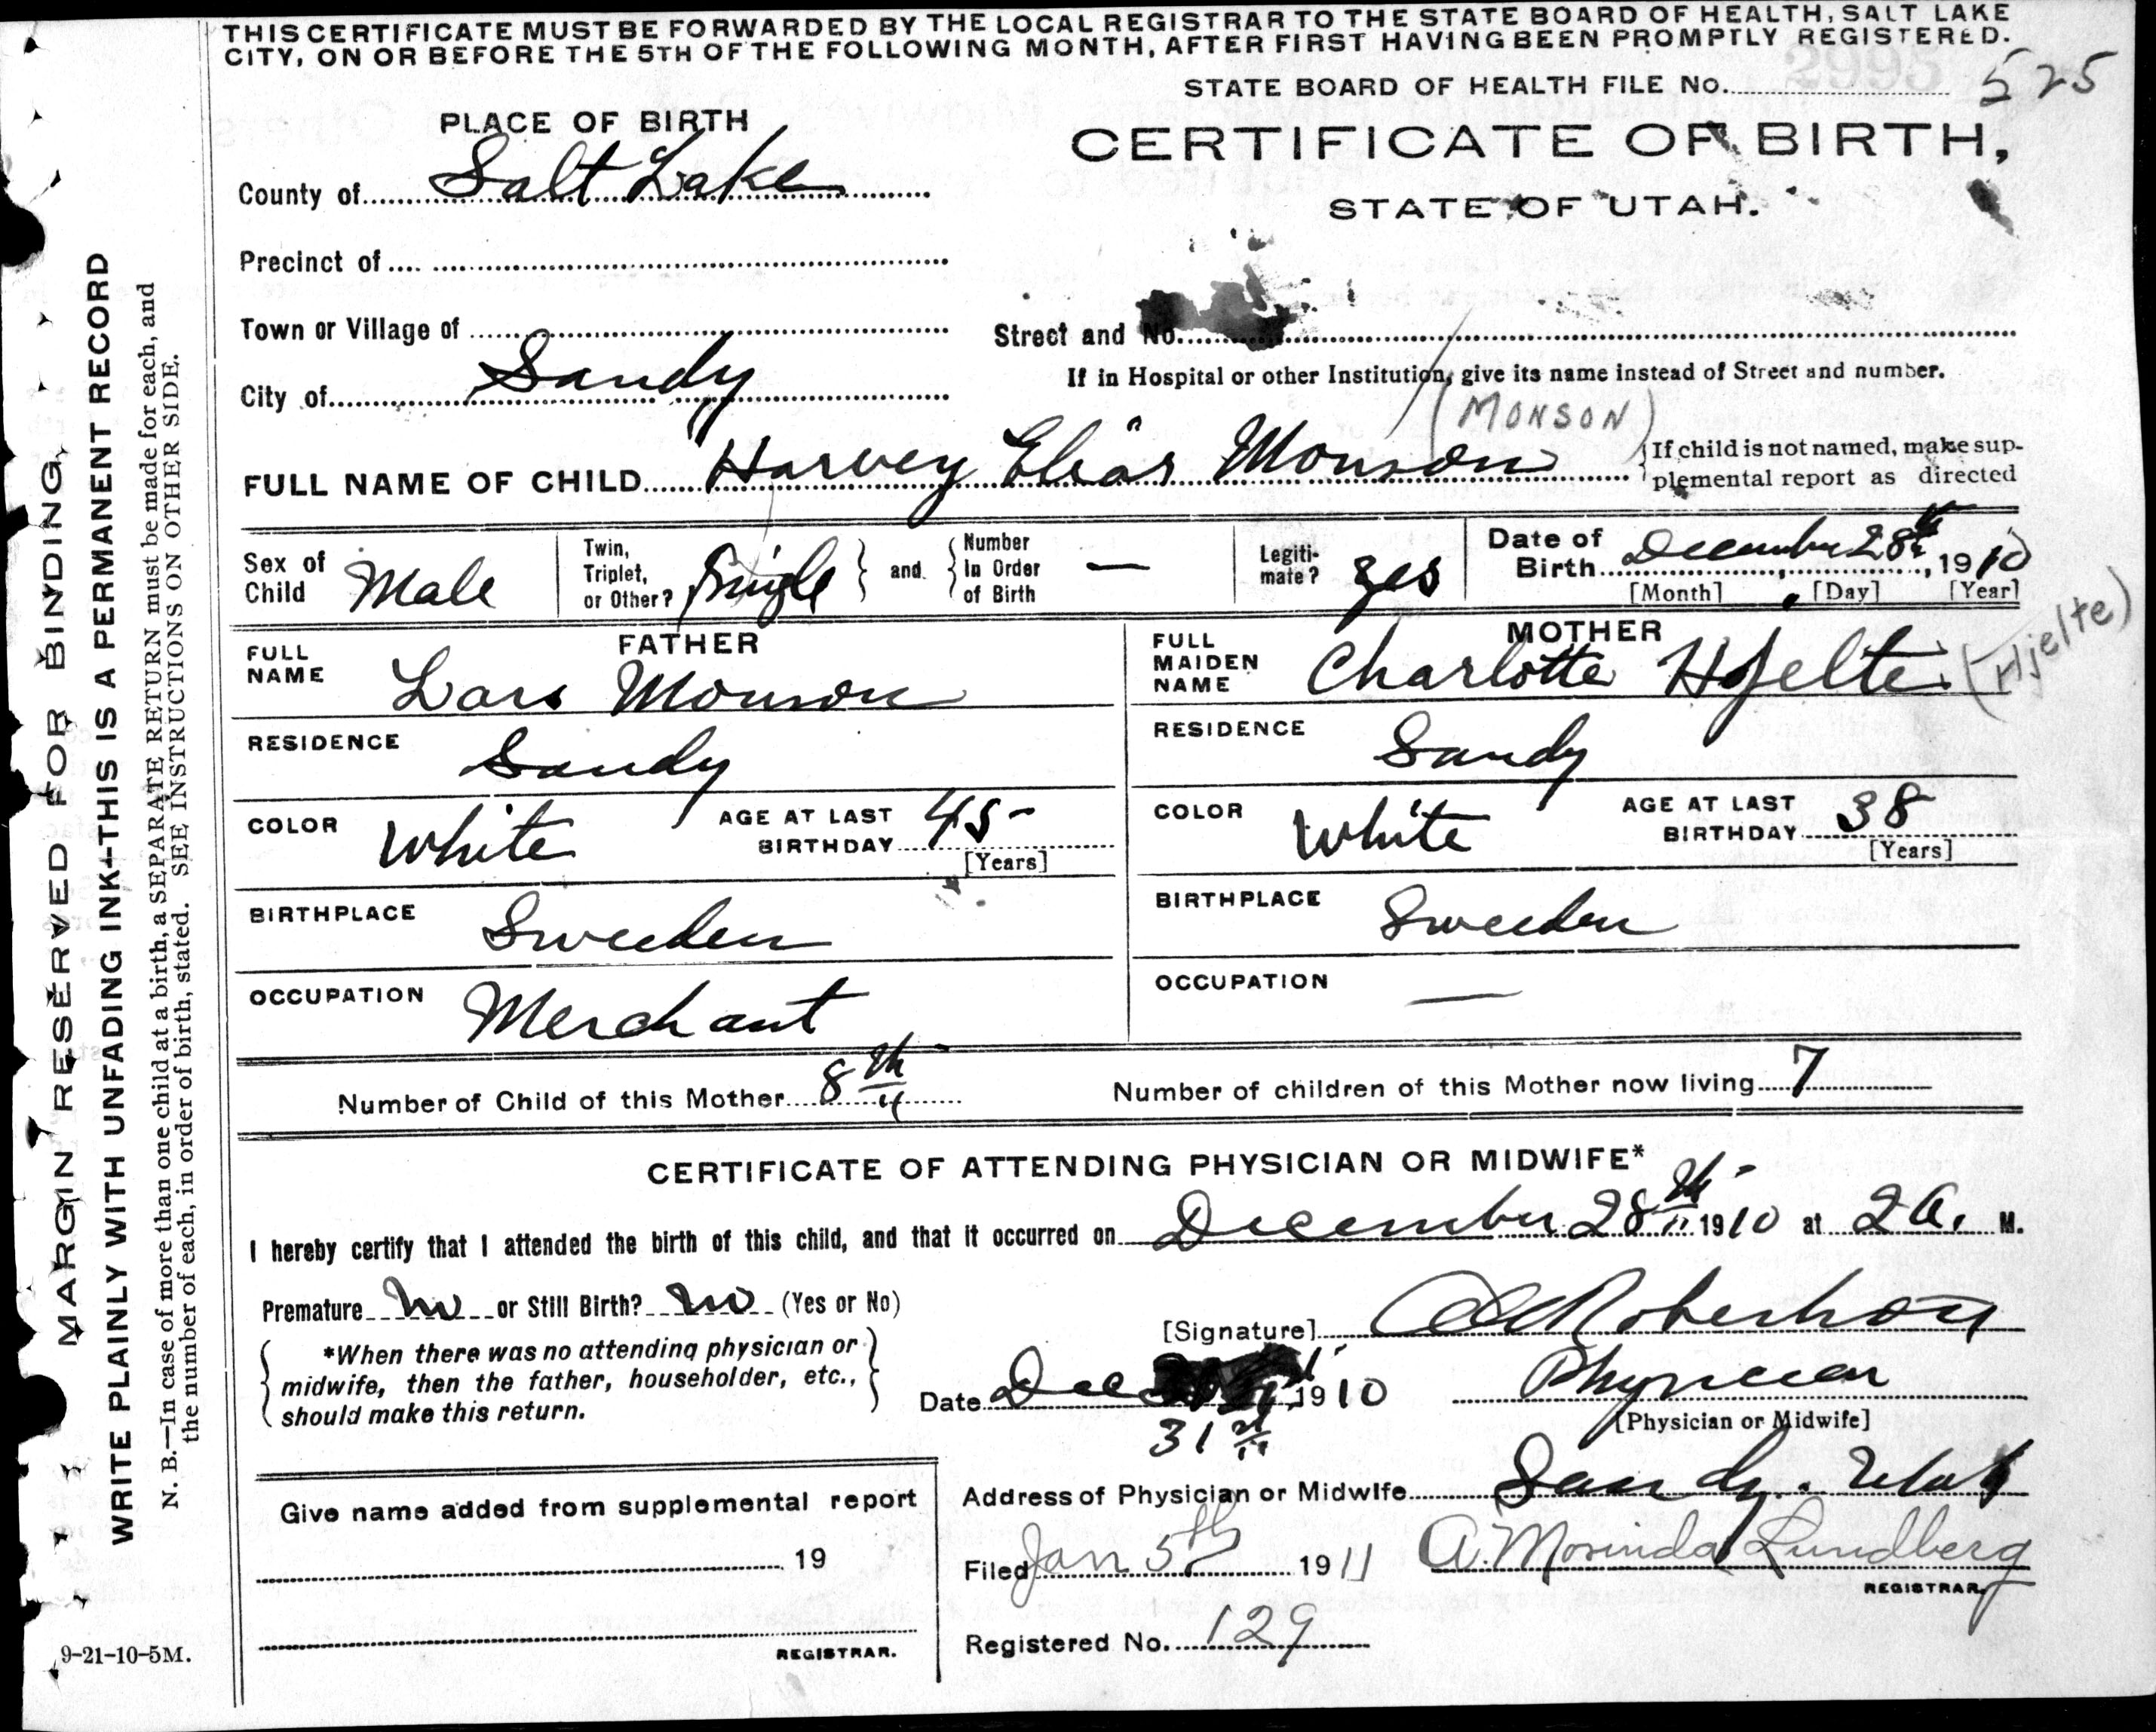 THIS CERTIFICATE MUST BE FORWARDED BY THE LOCAL REGISTRAR TO THE STATE BOARD OF HEALTH, SALT LAKE
CITY, ON OR BEFORE THE 5TH OF THE FOLLOWING MONTH, AFTER FIRST HAVING BEEN PROMPTLY REGISTERED.
STATE BOARD OF HEALTH FILE No. 525
PLACE OF BIRTH
CERTIFICATE OF BIRTH,
STATE OF UTAH.
County of Salt Lake
Precinct of
Town or Village of
Street and No.
City of Sandy
If in Hospital or other Institution, give its name instead of Street and number.
(MONSON)
FULL NAME OF CHILD Harvey Elias Monson
If child is not named, make sup-
plemental report as directed
Sex of Child Male
Twin, Triplet, or Other? Single
and
Number In Order of Birth —
Legiti-mate? yes
Date of Birth December 28th, 1910
[Month] [Day] [Year]
FATHER
FULL NAME Lars Monson
RESIDENCE Sandy
COLOR White
AGE AT LAST BIRTHDAY 45
[Years]
BIRTHPLACE Sweeden
OCCUPATION Merchant
MOTHER
FULL MAIDEN NAME Charlotte Hjelte (Hjelte)
RESIDENCE Sandy
COLOR White
AGE AT LAST BIRTHDAY 38
[Years]
BIRTHPLACE Sweeden
OCCUPATION —
Number of Child of this Mother 8th
Number of children of this Mother now living 7
CERTIFICATE OF ATTENDING PHYSICIAN OR MIDWIFE*
I hereby certify that I attended the birth of this child, and that it occurred on December 28th 1910 at 2 A. M.
Premature no or Still Birth? no (Yes or No)
*When there was no attending physician or
midwife, then the father, householder, etc.,
should make this return.
[Signature] Robertson
Date Dec 1910
31st
Physician
[Physician or Midwife]
Address of Physician or Midwife Sandy. Utah
Give name added from supplemental report
19
REGISTRAR.
Filed Jan 5th 1911 A. Morinda Lundberg
REGISTRAR
Registered No. 129
MARGIN RESERVED FOR BINDING
WRITE PLAINLY WITH UNFADING INK—THIS IS A PERMANENT RECORD
N. B.—In case of more than one child at a birth, a SEPARATE RETURN must be made for each, and
the number of each, in order of birth, stated. SEE INSTRUCTIONS ON OTHER SIDE.
9-21-10-5M.